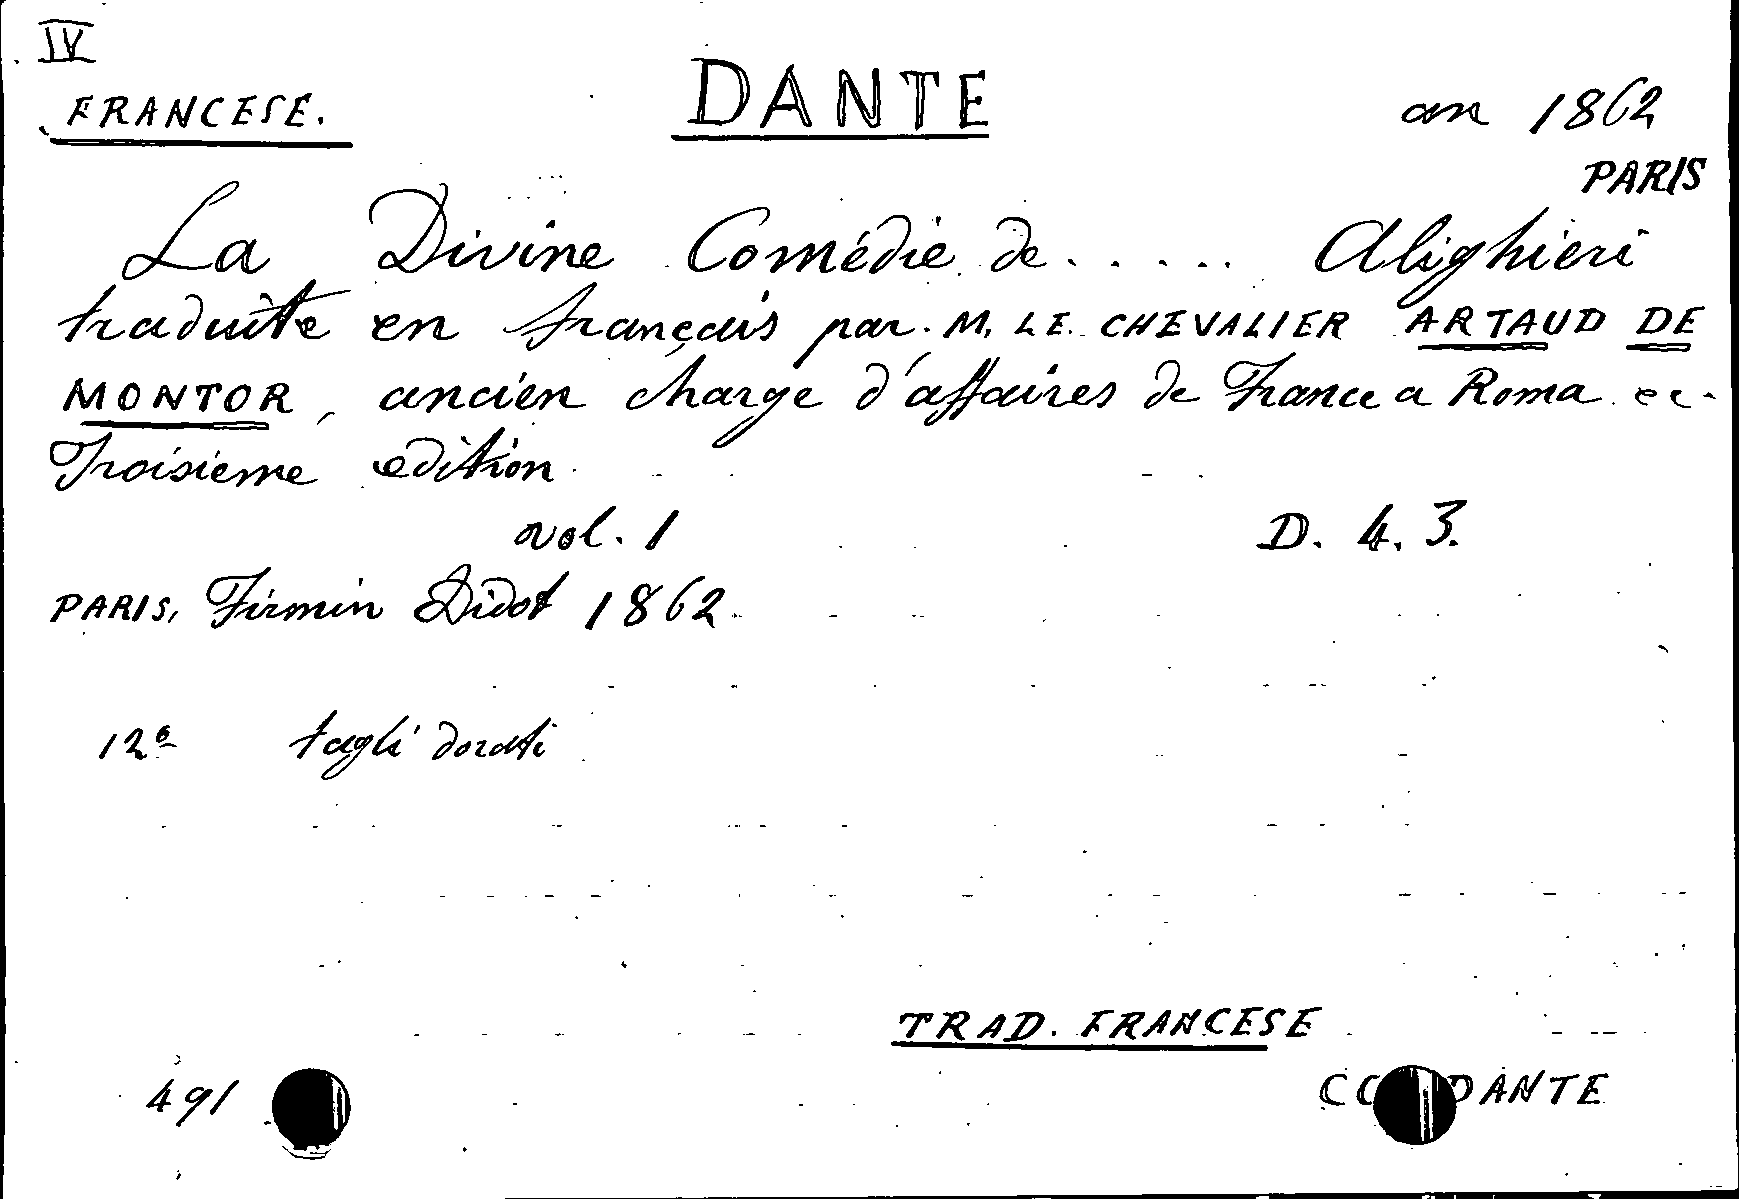 IV
FRANCESE. DANTE an 1862
PARIS
La Divine Comédie de ..... Alighieri
traduite en français par M. LE CHEVALIER ARTAUD DE
MONTOR, ancien charge d'affaires de France a Roma ec.
Troisieme edition
vol. 1 D. 4. 3.
PARIS, Firmin Didot 1862
12º tagli dorati
TRAD. FRANCESE
491 DANTE